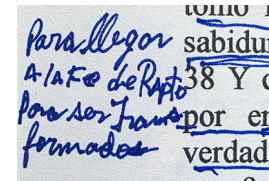 Para llegar
A la Fe de Rapto
Para ser Trans
formados
tomo
sabidu
38 Y
por en
verdad